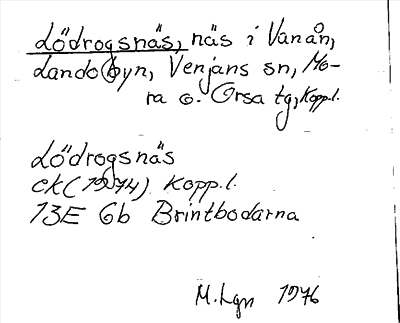 Lödrogsnäs, näs i Vanån,
Landobyn, Venjans sn, Mo-
ra o. Orsa tg, Kopp.l.
Lödrogsnäs
ek (1974) Kopp.l.
13E 6b Brintbodarna
M. Lgn 1976